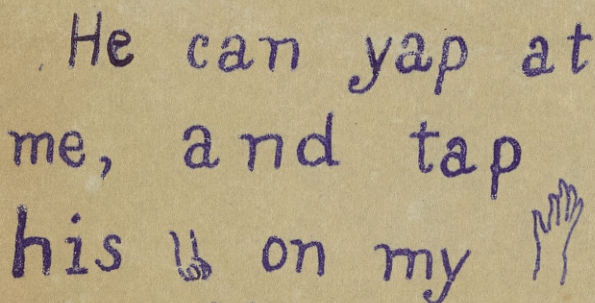 He can yap at
me, and tap
his on my